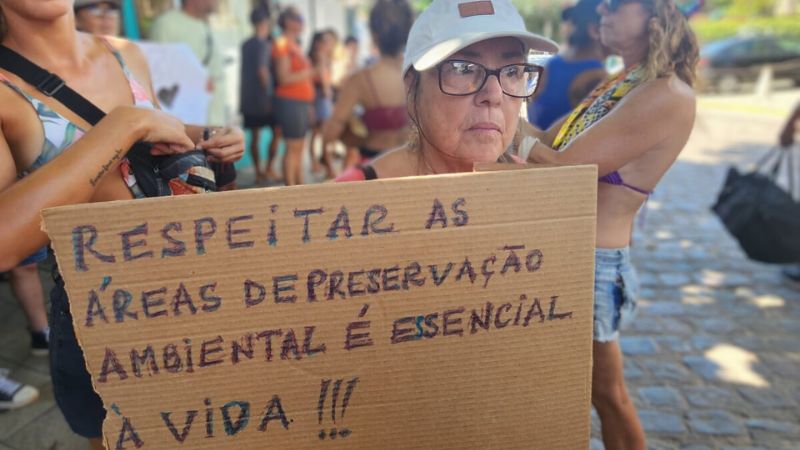 RESPEITAR AS
ÁREAS DE PRESERVAÇÃO
AMBIENTAL É ESSENCIAL
À VIDA !!!